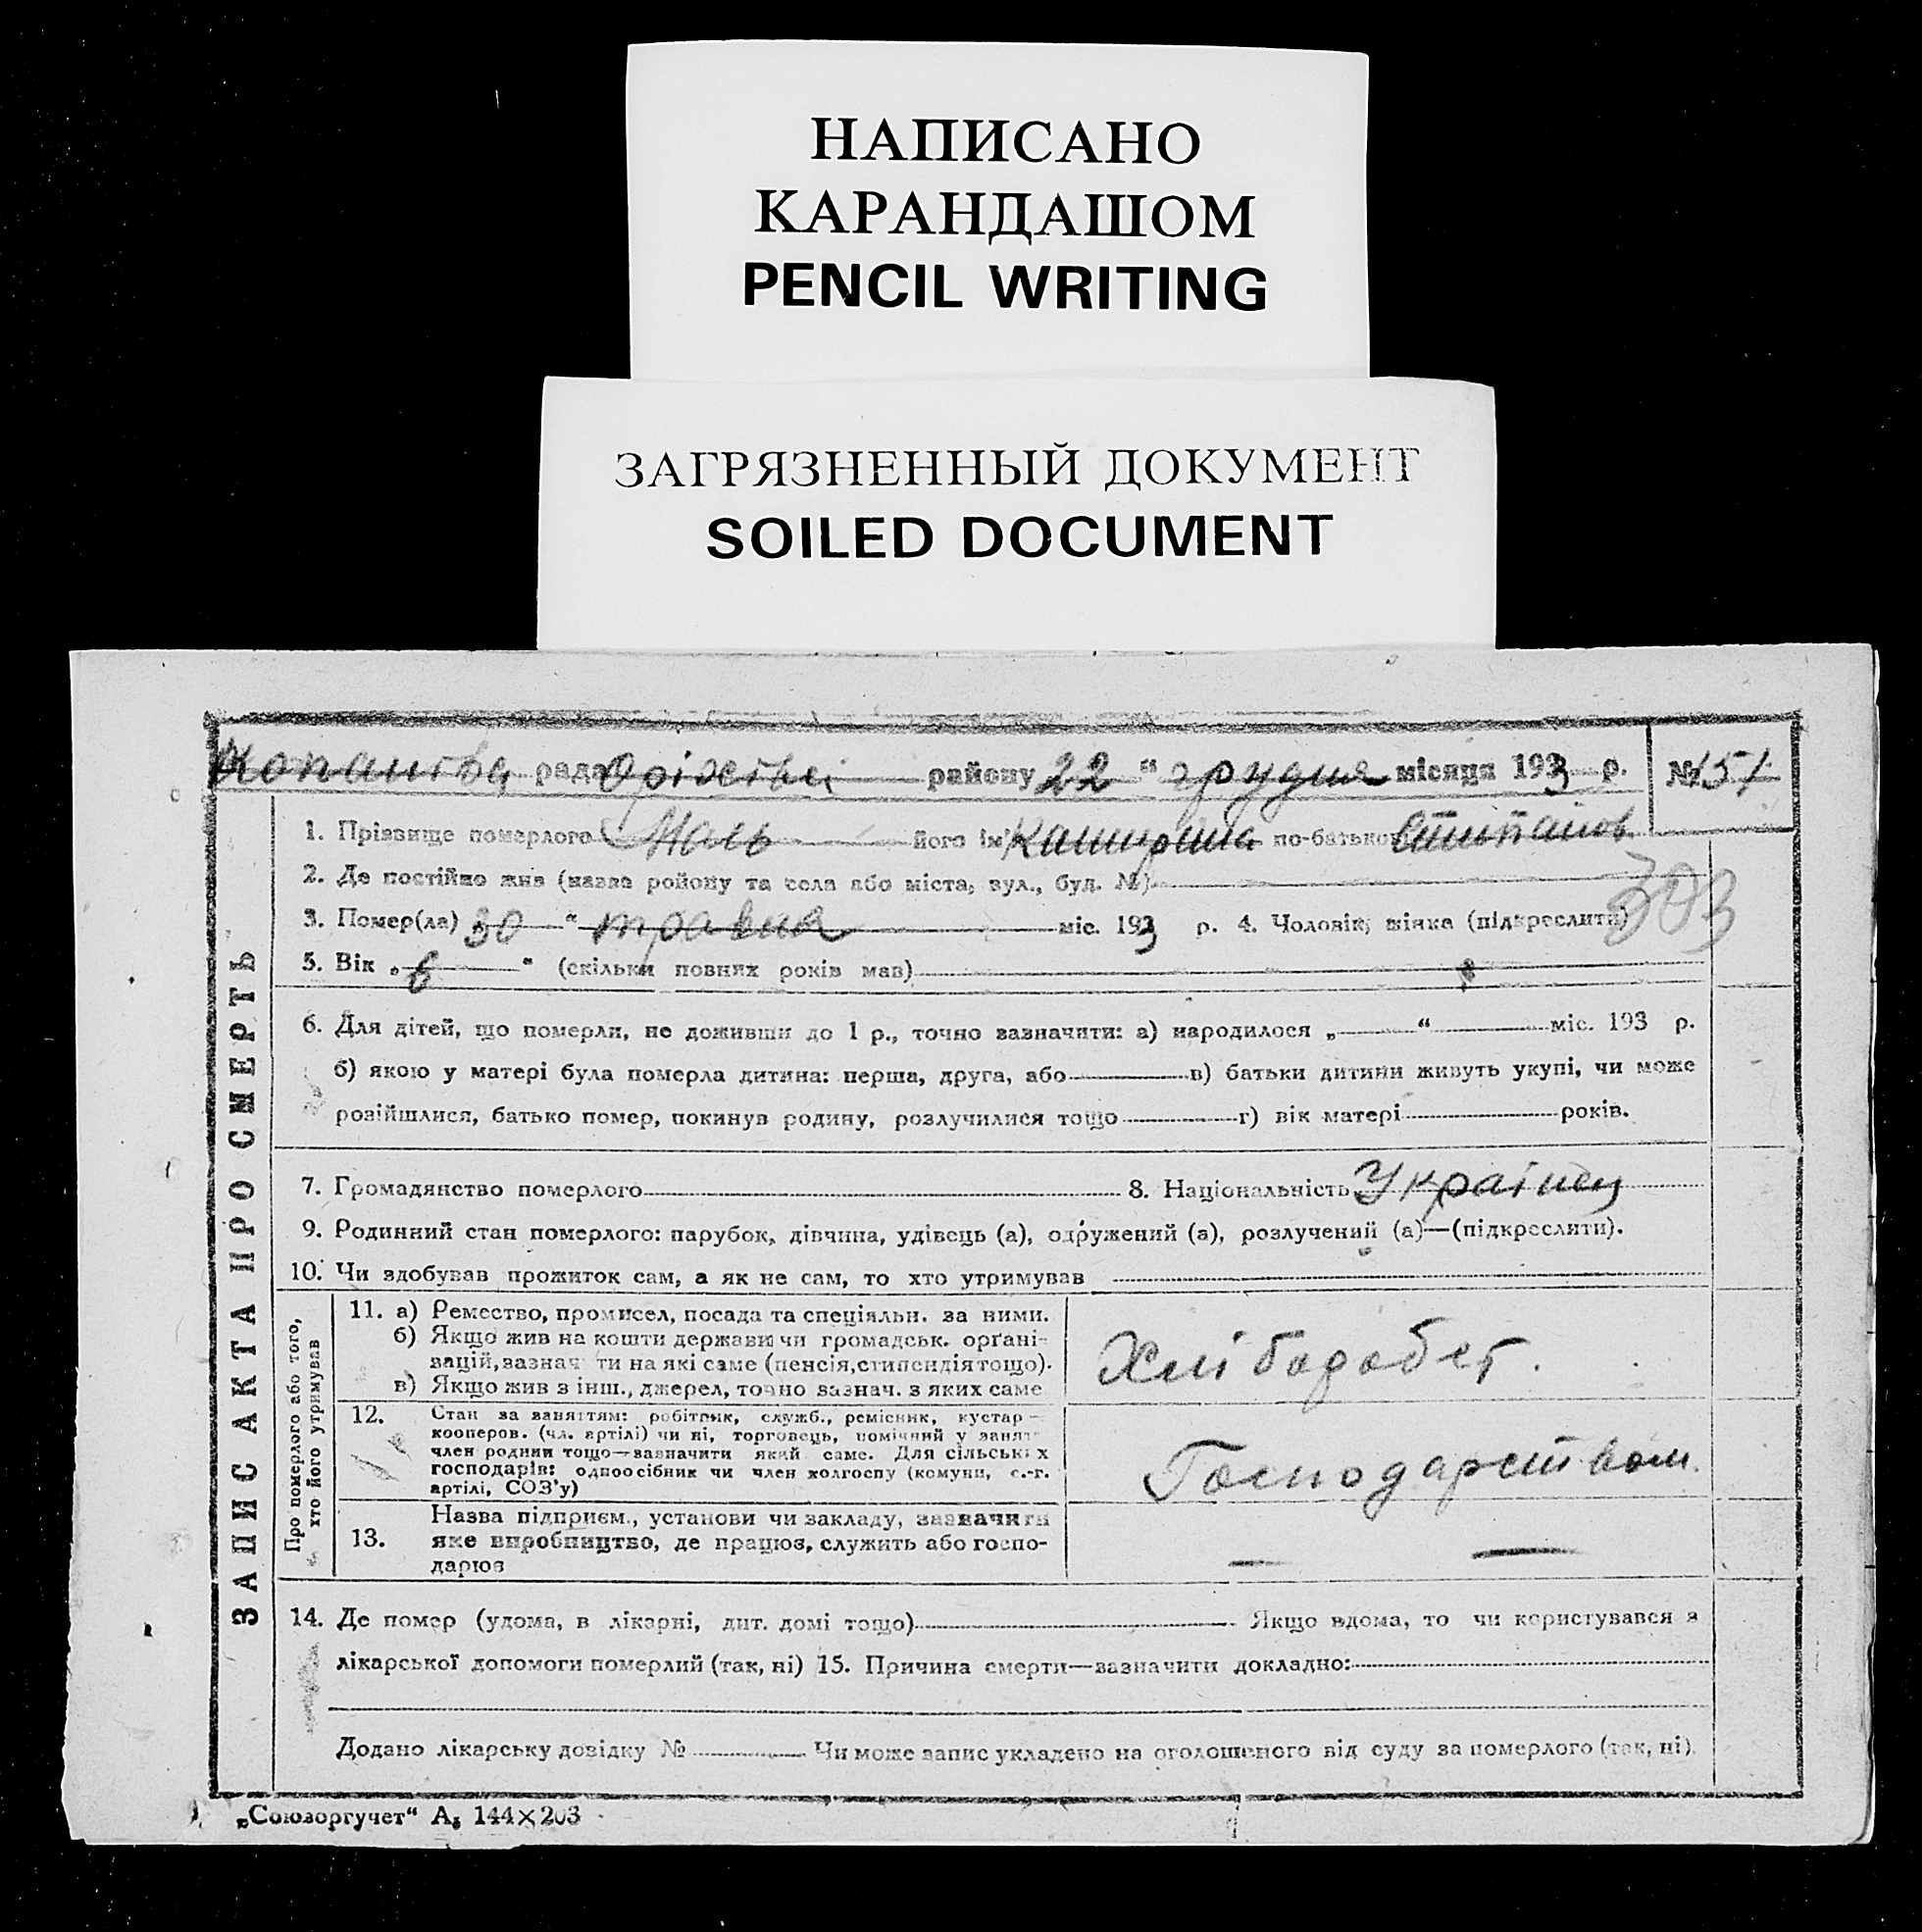 НАПИСАНО
КАРАНДАШОМ
PENCIL WRITING
ЗАГРЯЗНЕННЫЙ ДОКУМЕНТ
SOILED DOCUMENT
рада району 22 “ грудня місяця 1933 р. № 151
1. Прізвище померлого Маль його ім'я по-батькові
303
2. Де постійно жив (назва району та села або міста, вул., буд. №)
3. Помер(ла) „30 “ травня міс. 1933 р. 4. Чоловік, жінка (підкреслити)
5. Вік „6 “ (скільки повних років мав)
6. Для дітей, що померли, не доживши до 1 р., точно зазначити: а) народилося „ “ міс. 193 р.
б) якою у матері була померла дитина: перша, друга, або в) батьки дитини живуть укупі, чи може
розійшлися, батько помер, покинув родину, розлучилися тощо г) вік матері років.
7. Громадянство померлого 8. Національність Українец
9. Родинний стан померлого: парубок, дівчина, удівець (а), одружений (а), розлучений (а)—(підкреслити).
10. Чи здобував прожиток сам, а як не сам, то хто утримував
ЗАПИС АКТА ПРО СМЕРТЬ
Про померлого або того,
хто його утримував
11. а) Ремество, промисел, посада та спеціяльн. за ними.
б) Якщо жив на кошти держави чи громадськ. орґані-
зацій, зазначити на які саме (пенсія, стипендія тощо).
в) Якщо жив з інш., джерел, точно зазнач. з яких саме
Хлібороб
12. Стан за заняттям: робітник, служб., ремісник, кустар—
кооперов. (чл. артілі) чи ні, торговець, помічний у занят
член родини тощо—зазначити який саме. Для сільських
господарів: одноосібник чи член колгоспу (комуни, с.-г.
артілі, СОЗ'у)
Господарством.
13. Назва підприєм., установи чи закладу, зазначити
яке виробництво, де працює, служить або госпо-
дарює
— —
14. Де помер (удома, в лікарні, дит. домі тощо) Якщо вдома, то чи користувався з
лікарської допомоги померлий (так, ні) 15. Причина смерти—зазначити докладно:
Додано лікарську довідку № Чи може запис укладено на оголошеного від суду за померлого (так, ні)
„Союзоргучет“ А₅ 144×203